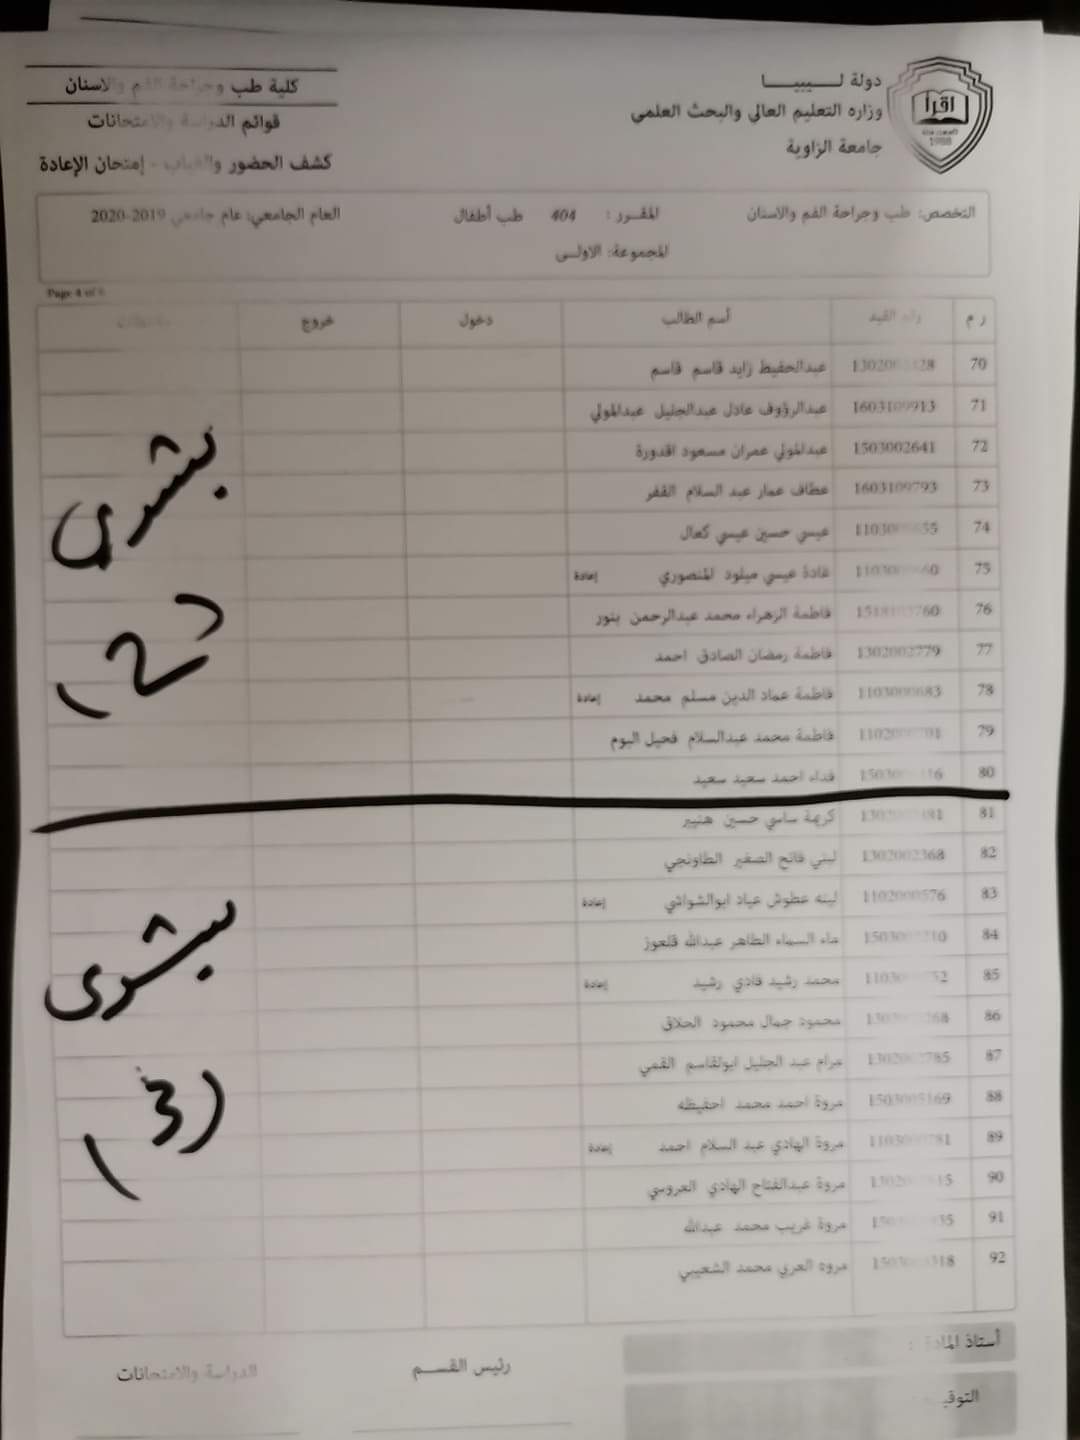 دولة لـــيبيـــا
وزاره التعليم العالي والبحث العلمي
جامعة الزاوية
اقرأ
1988
كلية طب وجراحة الفم والاسنان
قوائم الدراسة والامتحانات
كشف الحضور والغياب - إمتحان الإعادة
التخصص: طب وجراحة الفم والاسنان المقـرر : 404 طب أطفال العام الجامعي: عام جامعي 2019-2020
المجموعة: الاولى
Page 4 of
ر م رقم القيد أسم الطالب دخول خروج
70 عبدالحفيظ زايد قاسم قاسم
71 1603109913 عبدالرؤوف عادل عبدالجليل عبدالمولي
72 1503002641 عبدالمولي عمران مسعود اقدورة
73 1603109793 عطاف عمار عبد السلام القفر
74 عيسي حسين عيسي كعال
75 غادة عيسي ميلود المنصوري إعادة
76 فاطمة الزهراء محمد عبدالرحمن بنور
77 1302002779 فاطمة رمضان الصادق احمد
78 1103000683 فاطمة عماد الدين مسلم محمد إعادة
79 فاطمة محمد عبدالسلام فحيل البوم
80 فداء احمد سعيد سعيد
81 كريمة ساسي حسين هنيبر
82 1302002368 لبني فاتح الصغير الطاونجي
83 1102000576 لينه عطوش عياد ابوالشواشي إعادة
84 ماء السماء الطاهر عبدالله قلعوز
85 محمد رشيد فادي رشيد إعادة
86 محمود جمال محمود الحلاق
87 مرام عبد الجليل ابولقاسم القمي
88 1503005169 مروة احمد محمد احفيظه
89 مروة الهادي عبد السلام احمد إعادة
90 مروة عبدالفتاح الهادي العروسي
91 مروة غريب محمد عبدالله
92 مروه العربي محمد الشعيبي
بشرى
(2)
بشرى
(3)
أستاذ المادة :
رئيس القسـم
الدراسة والامتحانات